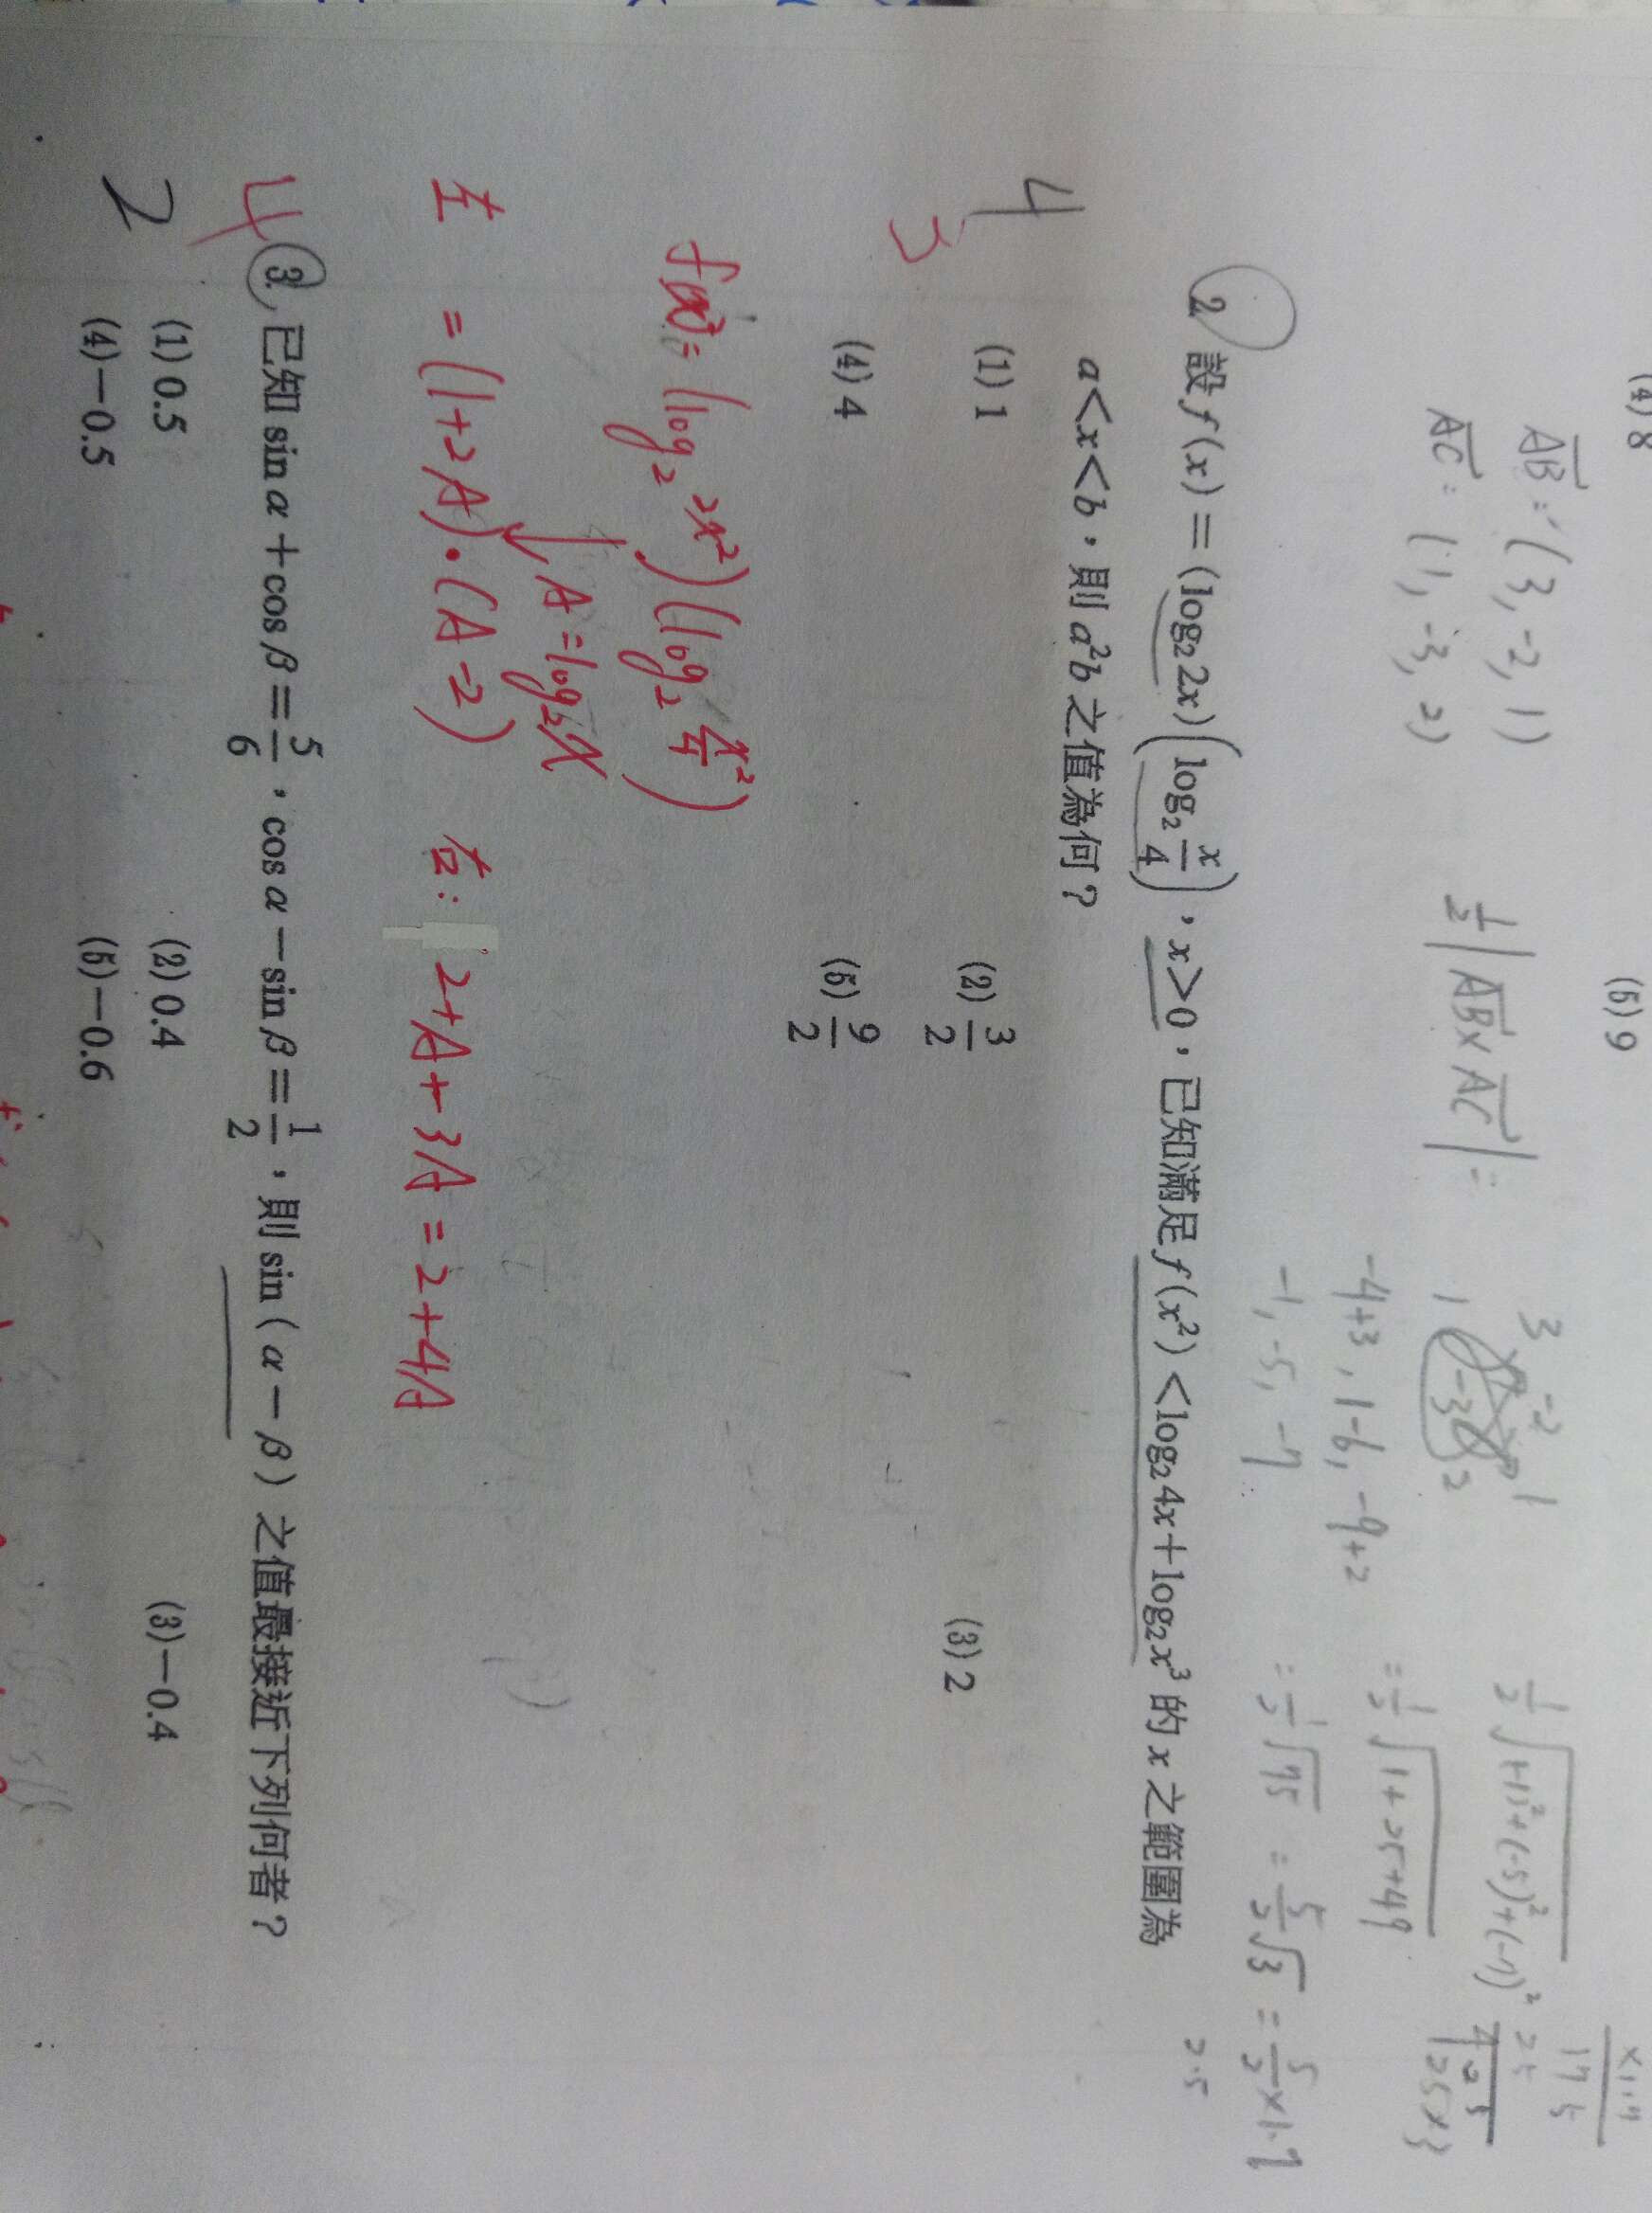 (4) 8
(5) 9
AB = (3, -2, 1)
AC = (1, -3, 2)
1/2 |AB × AC| =
3 -2 1
1 -3 2
-4+3, 1-6, -9+2
-1, -5, -7
= 1/2 √1+25+49
= 1/2 √75 = 5/2 √3 = 5/2 × 1.7
2.5
2. 設 f(x) = (log₂2x)(log₂ x/4), x>0, 已知滿足 f(x²) < log₂4x + log₂x³ 的 x 之範圍為
a<x<b, 則 a²b 之值為何?
4
3
(1) 1
(2) 3/2
(3) 2
(4) 4
(5) 9/2
f(x²) = (log₂ 2x²)(log₂ x²/4)
A = log₂x
左 = (1+2A)·(A-2)
右: 2+A+3A = 2+4A
4
3. 已知 sin α + cos β = 5/6, cos α - sin β = 1/2, 則 sin (α-β) 之值最接近下列何者?
2
(1) 0.5
(2) 0.4
(3) -0.4
(4) -0.5
(5) -0.6